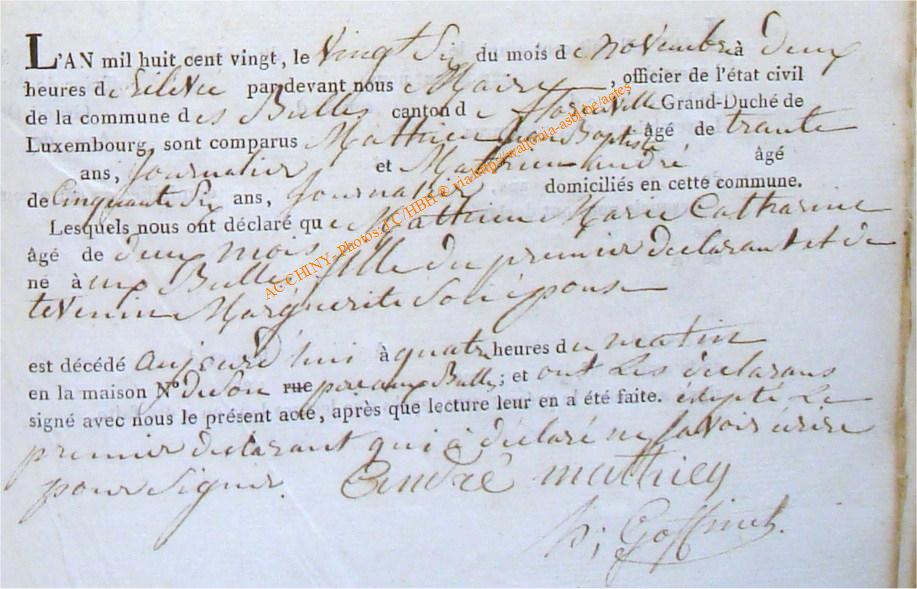 L'AN mil huit cent vingt, le vingt Six du mois de novembre à deux
heures de rélevée par devant nous Maire, officier de l'état civil
de la commune des Bulles canton de florenville Grand-Duché de
Luxembourg, sont comparus Mathieu Jean Baptiste âgé de trante
ans, Journalier et Mathieu andré âgé
de Cinquante Six ans, Journalier domiciliés en cette commune.
Lesquels nous ont déclaré que Mathieu Marie Catharine
âgé de deux mois
né à aux Bulles fille du premier déclarant et de
tevenin Marguerite Son épouse
est décédé aujourd'hui à quatre heures du matin
en la maison No. de son rue pere aux Bulles; et ont les déclarans
signé avec nous le présent acte, après que lecture leur en a été faite. éxepté Le
premier déclarant qui à déclaré ne savoir écrire
pour Signer. André mathieu
Goffinet.
AC CHINY- Photos LC/HBH © via luxemburgensia-asbl.be/actes